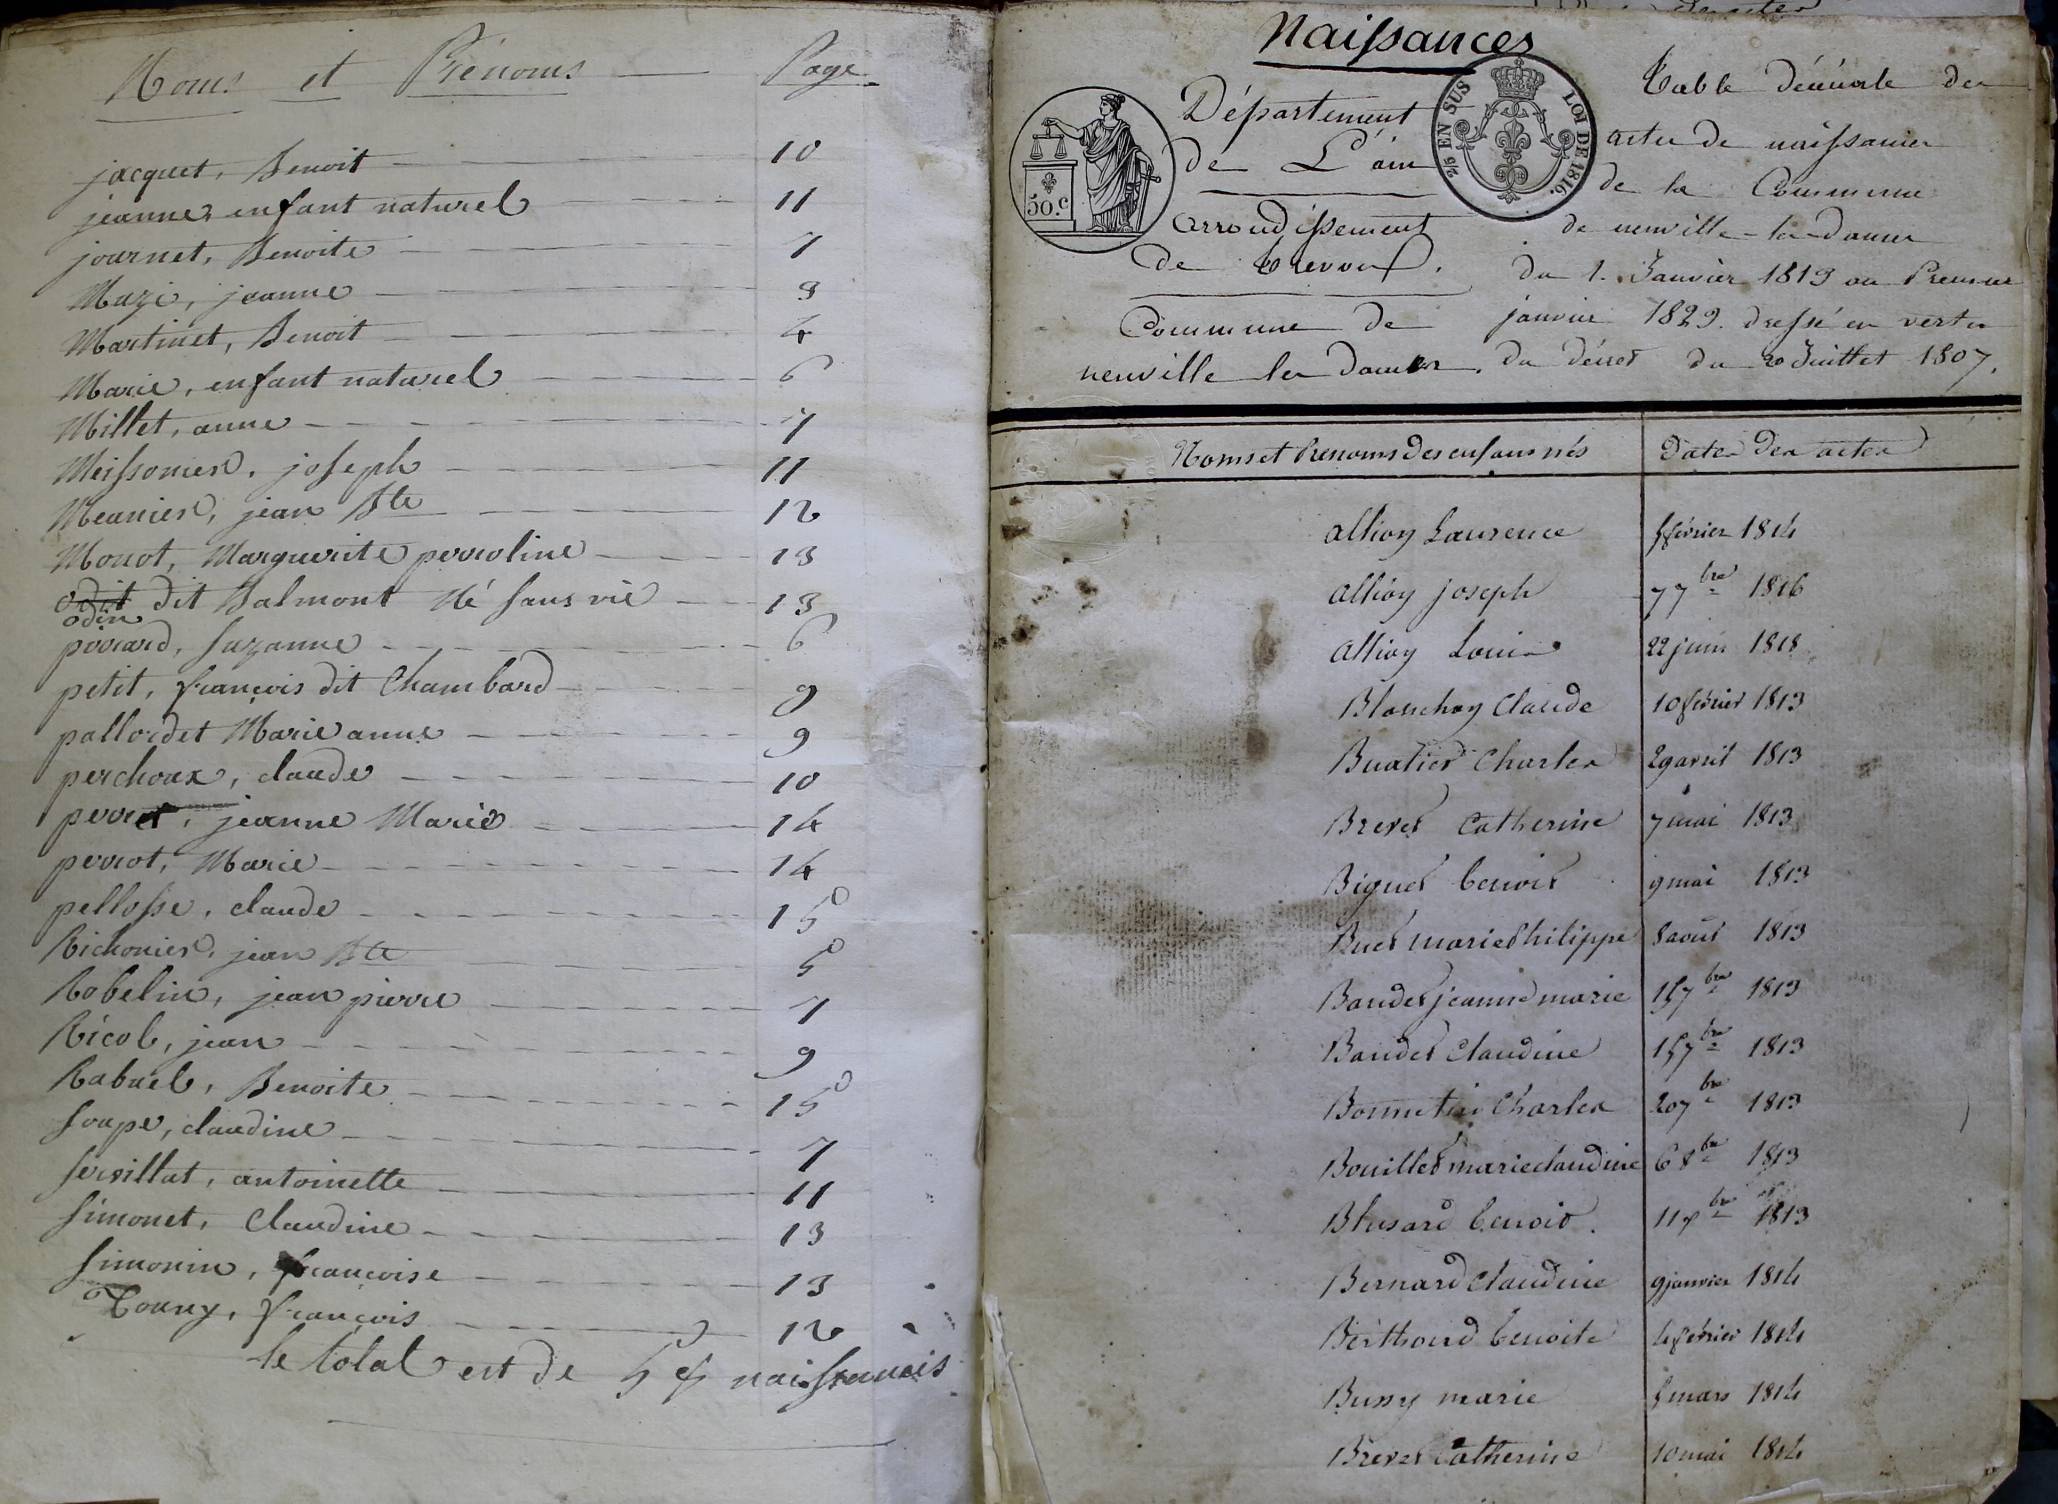 Noms et Prénoms — Page
jacquet, Benoit 10
jeanne, enfant naturel 11
journet, Benoite 7
Mazi, jeanne 3
Martinet, Benoit 4
Marie, enfant naturel 6
Millet, anne 7
Meissonier, joseph 11
Meunier, jean Bte 12
Monot, Marguerite perroline 13
dit Balmont Né sans vie 13
odin
suzanne 6
petit, françois dit Chambard 9
pallordet Marie anne 9
perchoux, claude 10
jeanne Marie 14
perrot, Marie 14
pellosse, claude 15
Richonier, jean Bte 5
Robelin, jean pierre 7
Ricol, jean 9
Rabuel, Benoite 15
soupe, claudine 7
servillat, antoinette 11
simonet, Claudine 13
simonin, françoise 13
Touny, françois 12
le total est de naissances
Naissances
Département
de L'ain
arrondissement
de trevoux.
Commune de
neuville les dames.
50.c
2/5 EN SUS LOI DE 1816.
Table décénale des
actes de naissances
de la Commune
de neuville-les-Dames
du 1. Janvier 1813 au Premier
janvier 1823. dressé en vertu
du décret du 20 Juillet 1807.
Noms et Prenoms Des enfans nés Dates Des actes
allioy Laurence 5 février 1814
allioy joseph 7 7bre 1816
allioy Louis 22 juin 1818
Blanchoy Claude 10 février 1813
Buatier Charles 29 avril 1813
Brevet Catherine 7 mai 1813
Biguet benoit 9 mai 1813
Buet marie Philippe 8 aout 1813
Baudet jeanne marie 15 7bre 1813
Baudet Claudine 15 7bre 1813
Bonnetin Charles 20 7bre 1813
Bouillet marie claudine 6 8bre 1813
Blusard benoit. 11 xbre 1813
Bernard Claudine 9 janvier 1814
Berthoud benoite 4 février 1814
Bussy marie 5 mars 1814
Brevet Catherine 10 mai 1814